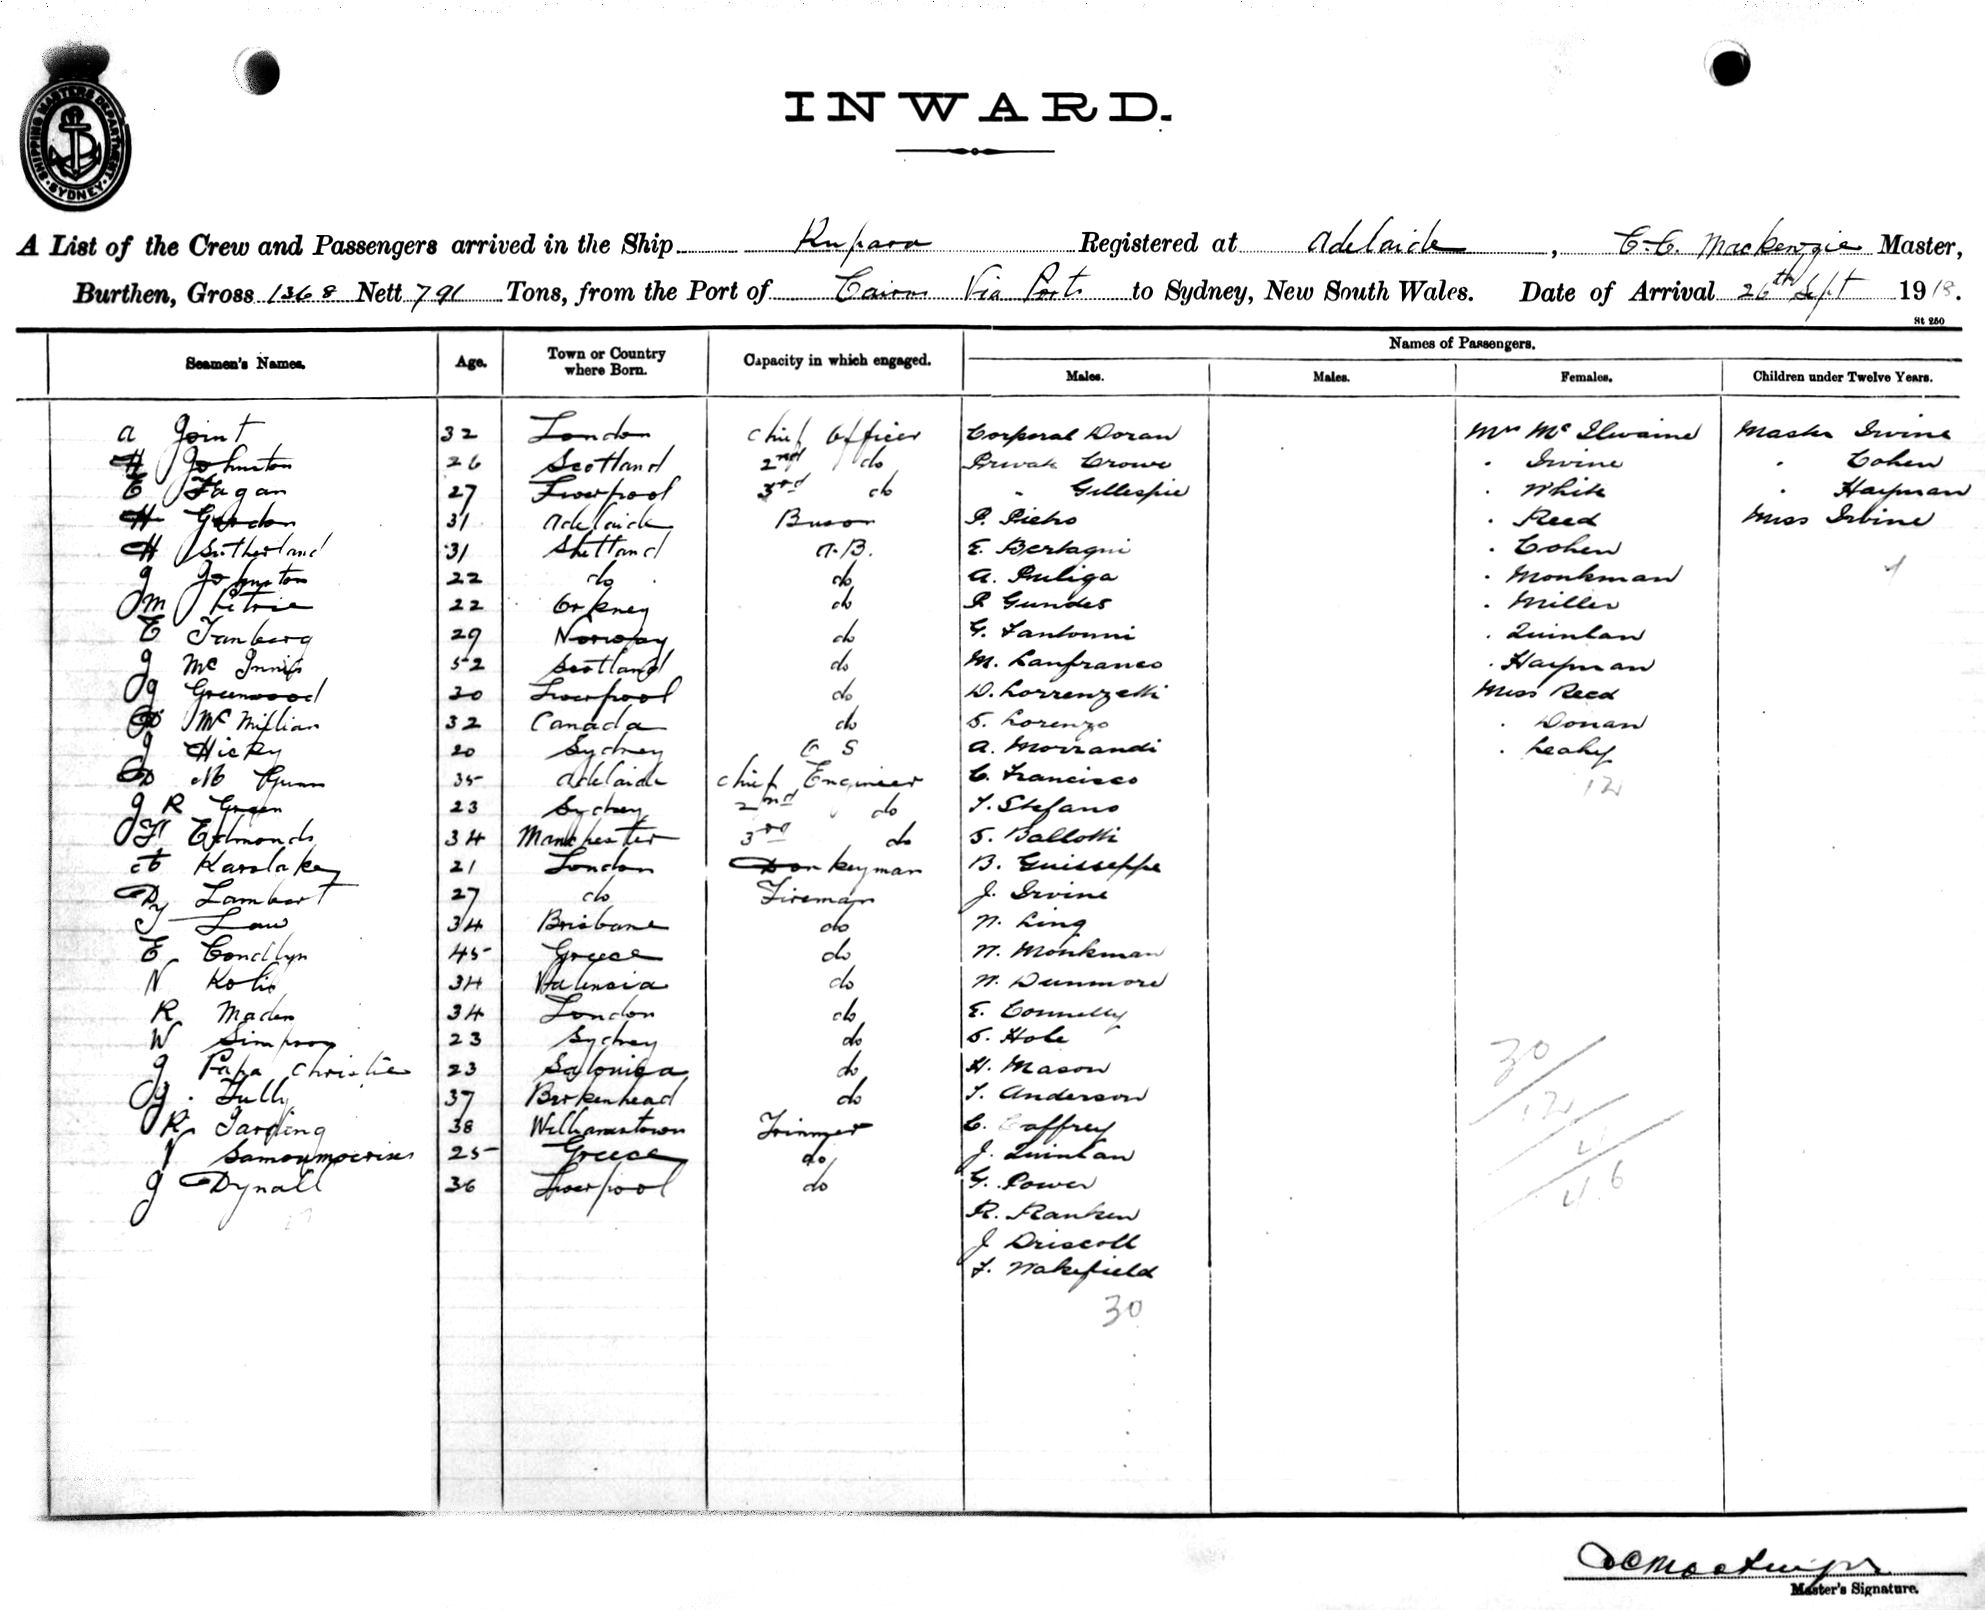 SHIPPING MASTERS DEPARTMENT
SYDNEY
INWARD.
A List of the Crew and Passengers arrived in the Ship Rupara Registered at Adelaide, C. C. Mackenzie Master,
Burthen, Gross 1368 Nett 791 Tons, from the Port of Cairns Via Ports to Sydney, New South Wales. Date of Arrival 26th Sept 1918.
St 250
Seamen's Names. Age. Town or Country where Born. Capacity in which engaged. Names of Passengers.
Males. Males. Females. Children under Twelve Years.
A Joint 32 London Chief Officer Corporal Doran Mrs McIlwaine Master Irvine
H Johnston 26 Scotland 2nd do Private Crowe " Irvine " Cohen
E Fagan 27 Liverpool 3rd do " Gillespie " White " Hayman
H Gordon 31 Adelaide Bosun P. Pietro " Reed Miss Irvine
H Sutherland 31 Shetland A.B. E. Bertagni " Cohen
J Johnston 22 do do A. Puliga " Monkman 4
J M Petrie 22 Orkney do P. Gundes " Miller
E Tanberg 29 Norway do G. Fantonni " Quinlan
J McInnis 52 Scotland do M. Lanfranco " Hayman
J Greenwood 30 Liverpool do D. Lorrenzetti Miss Reed
McMillan 32 Canada do S. Lorenzo " Donan
J Hicky 20 Sydney O S A. Morrandi " Leahy
D M Gunn 35 Adelaide Chief Engineer C. Francisco 12
J R Green 23 Sydney 2nd do F. Stefano
J H Edmonds 34 Manchester 3rd do S. Ballotti
A Karslake 21 London Donkeyman B. Guisseppe
Dy Lambert 27 do Fireman J. Irvine
J Law 34 Brisbane do N. Ling
E Condllyn 45 Greece do N. Monkman
N Kolis 34 Valencia do N. Dunmore
R Maden 34 London do E. Connelly
W Simpson 23 Sydney do S. Hole
J Papa Christie 23 Salonica do H. Mason 30
J. Tully 37 Birkenhead do F. Anderson 12
R Tarding 38 Williamstown Trimmer C. Caffrey 4
N 25 Greece do J. Quinlan 46
J Dynall 36 Liverpool do G. Power
R. Ranken
J Driscoll
F. Wakefield
30
Master's Signature.